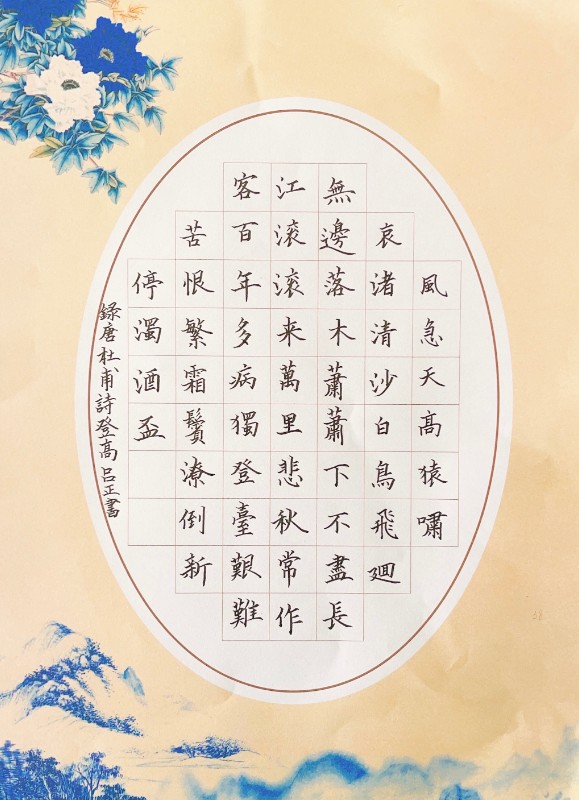 風急天高猿嘯
哀渚清沙白鳥飛廻
無邊落木蕭蕭下不盡長
江滚滚来萬里悲秋常作
客百年多病獨登臺艱難
苦恨繁霜鬢潦倒新
停濁酒盃
録唐杜甫詩登高吕正書